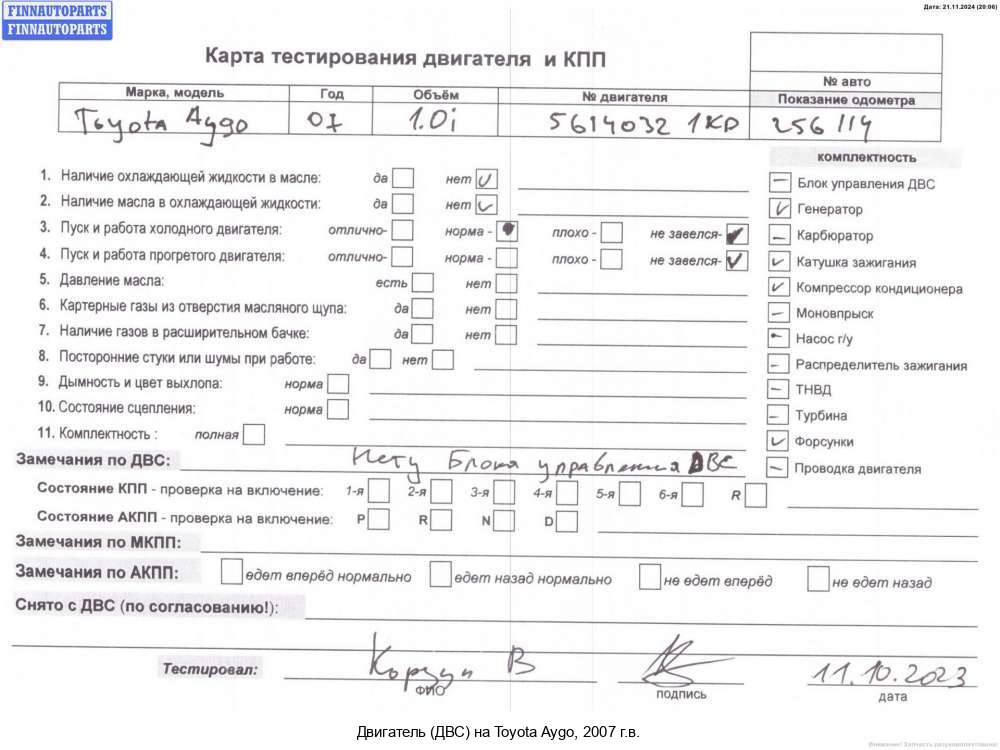 FINNAUTOPARTS
FINNAUTOPARTS
Дата: 21.11.2024 (20:06)
Карта тестирования двигателя и КПП
№ авто
Марка, модель Год Объём № двигателя Показание одометра
Toyota Aygo 07 1.0i 5614032 1KD 256 114
комплектность
1. Наличие охлаждающей жидкости в масле: да нет
Блок управления ДВС
2. Наличие масла в охлаждающей жидкости: да нет
Генератор
3. Пуск и работа холодного двигателя: отлично- норма - плохо - не завелся-
Карбюратор
4. Пуск и работа прогретого двигателя: отлично- норма - плохо - не завелся-
Катушка зажигания
5. Давление масла: есть нет
Компрессор кондиционера
6. Картерные газы из отверстия масляного щупа: да нет
Моновпрыск
7. Наличие газов в расширительном бачке: да нет
Насос г/у
8. Посторонние стуки или шумы при работе: да нет
Распределитель зажигания
9. Дымность и цвет выхлопа: норма
ТНВД
10. Состояние сцепления: норма
Турбина
11. Комплектность : полная
Форсунки
Замечания по ДВС: Нету Блока управления ДВС
Проводка двигателя
Состояние КПП - проверка на включение: 1-я 2-я 3-я 4-я 5-я 6-я R
Состояние АКПП - проверка на включение: P R N D
Замечания по МКПП:
Замечания по АКПП: едет вперёд нормально едет назад нормально не едет вперёд не едет назад
Снято с ДВС (по согласованию!):
Тестировал: Корзун В 11.10.2023
ФИО подпись дата
Двигатель (ДВС) на Toyota Aygo, 2007 г.в.
Внимание! Запчасть разукомплектована!